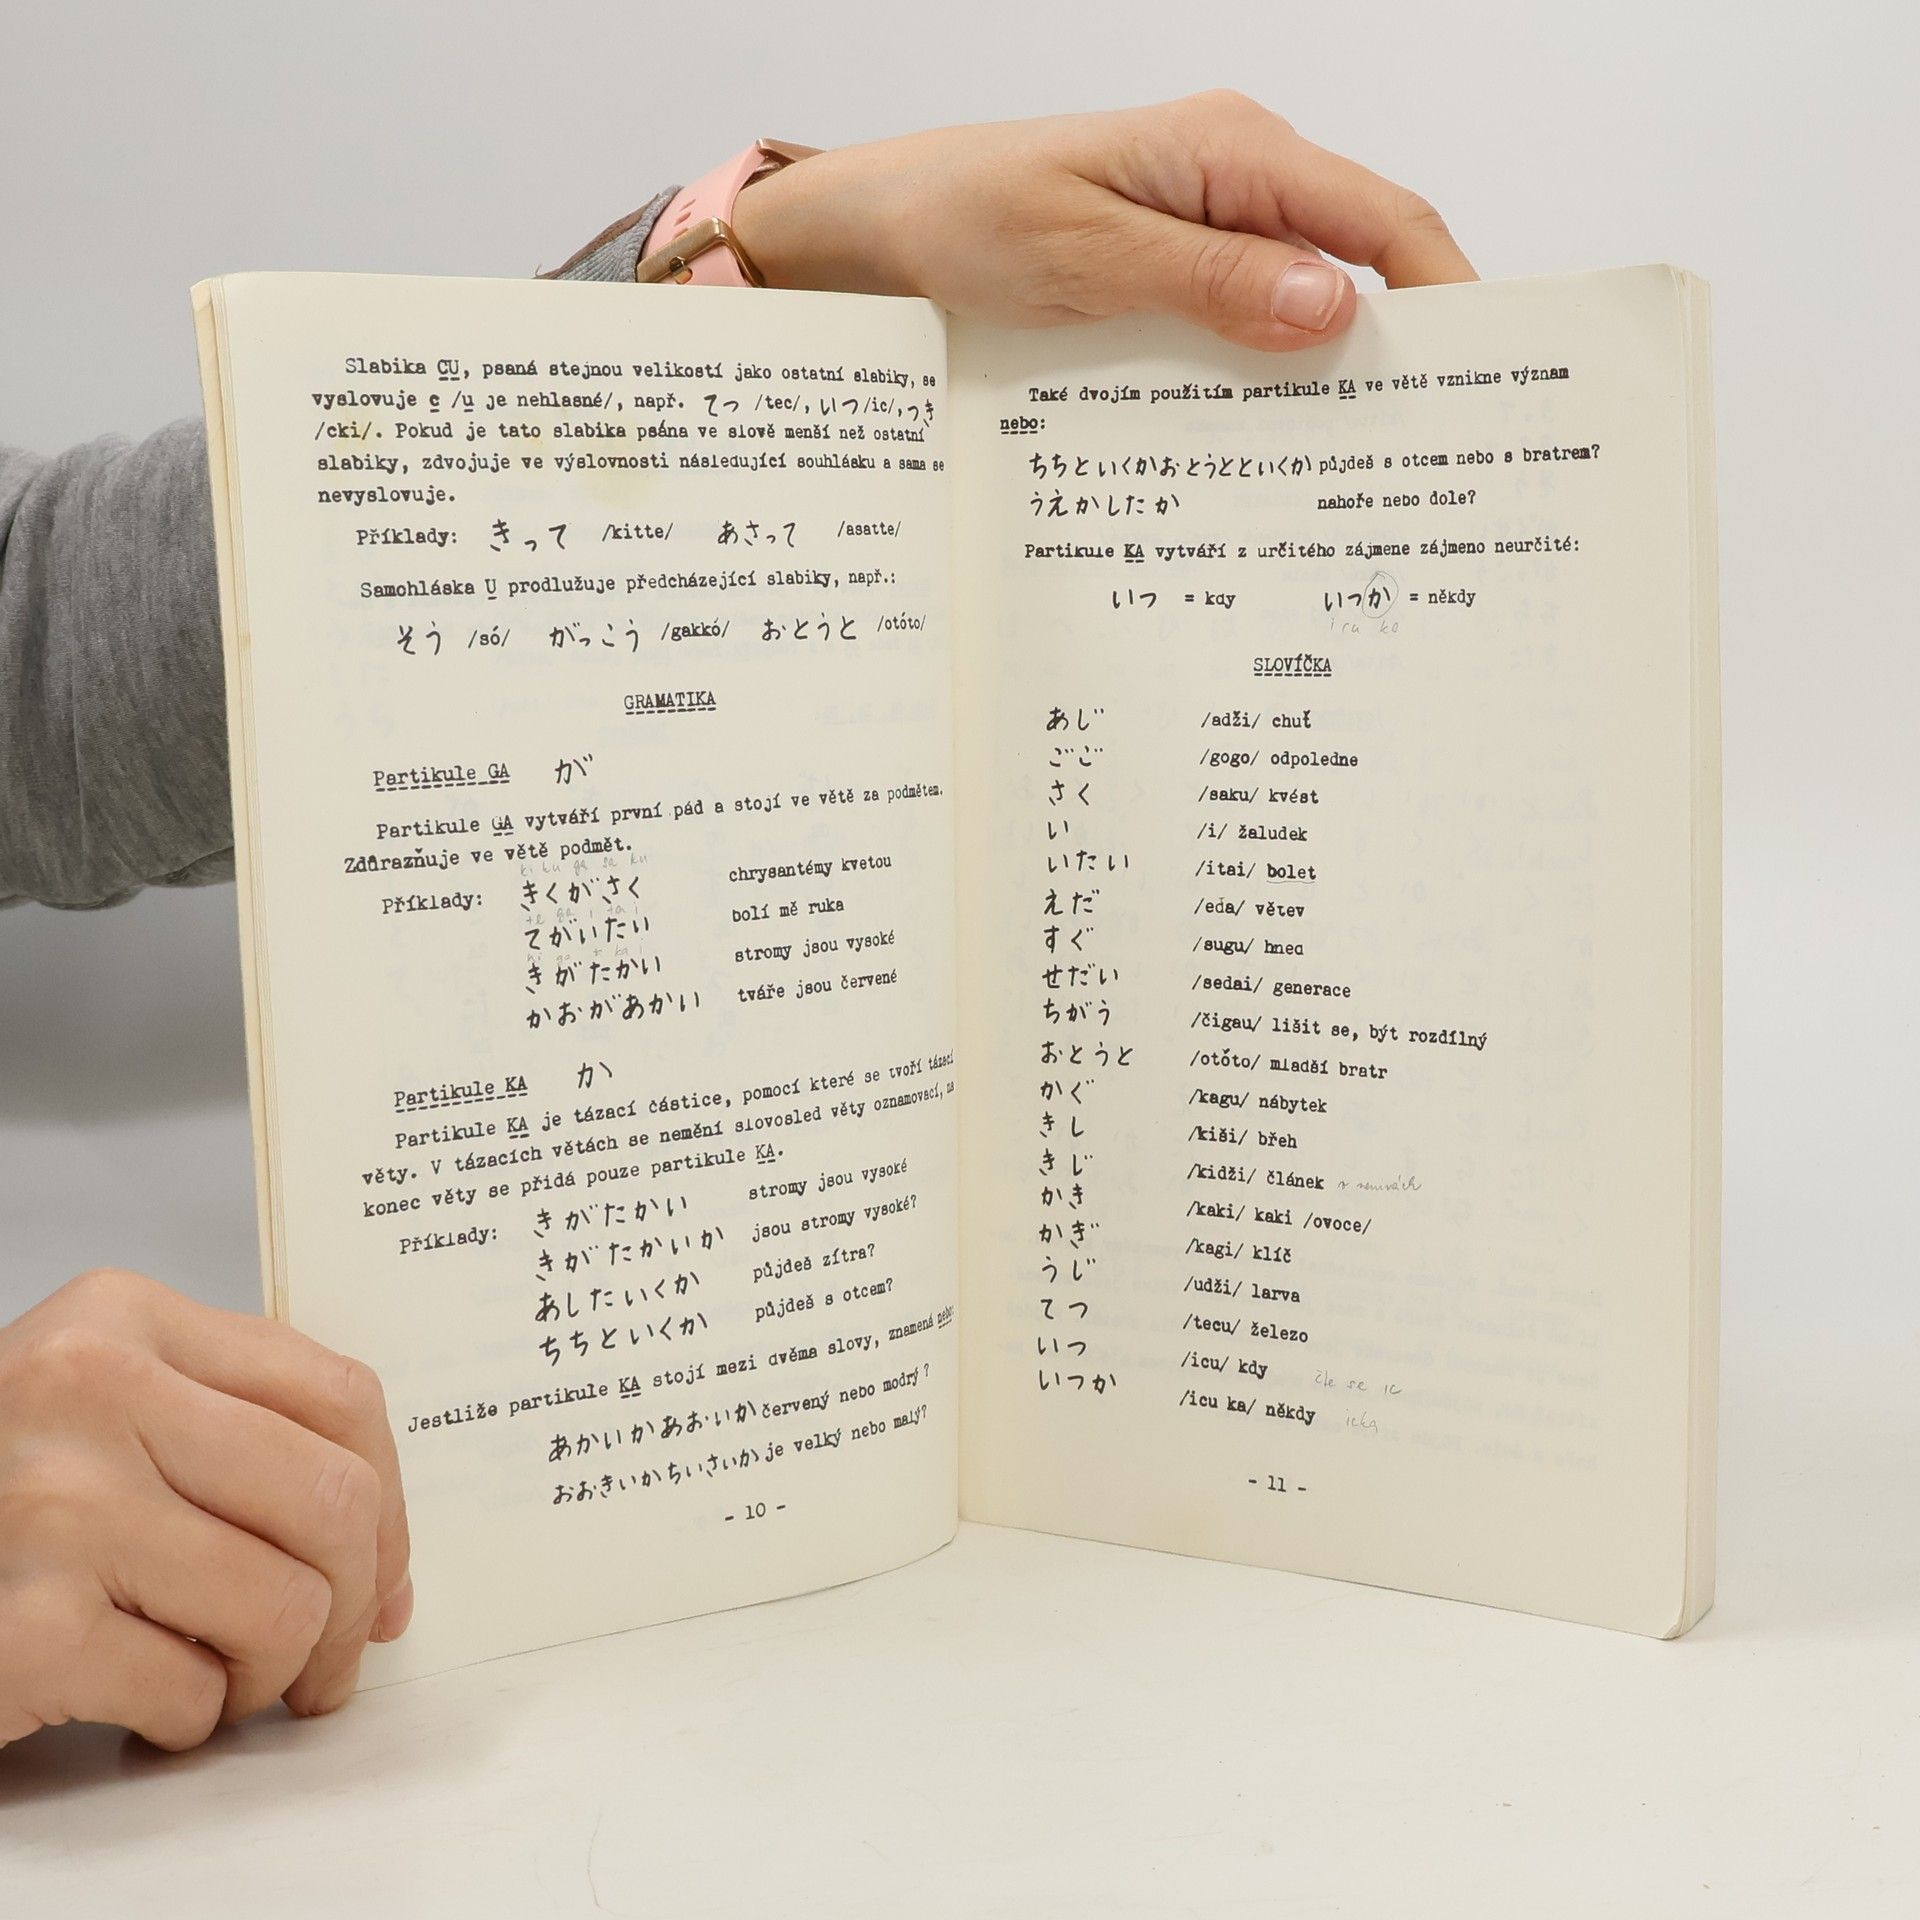 Slabika CU, psaná stejnou velikostí jako ostatní slabiky, se
vyslovuje c /u je nehlasné/, např. てつ /tec/, いつ /ic/, つき
/cki/. Pokud je tato slabika psána ve slově menší než ostatní
slabiky, zdvojuje ve výslovnosti následující souhlásku a sama se
nevyslovuje.
Příklady: きって /kitte/ あさって /asatte/
Samohláska U prodlužuje předcházející slabiky, např.:
そう /só/ がっこう /gakkó/ おとうと /otóto/
GRAMATIKA
Partikule GA が
Partikule GA vytváří první pád a stojí ve větě za podmětem.
Zdůrazňuje ve větě podmět.
ki ku ga sa ku
Příklady: きくがさく chrysantémy kvetou
te ga i ta i
てがいたい bolí mě ruka
きがたかい stromy jsou vysoké
かおがあかい tváře jsou červené
Partikule KA か
Partikule KA je tázací částice, pomocí které se tvoří tázací
věty. V tázacích větách se nemění slovosled věty oznamovací, na
konec věty se přidá pouze partikule KA.
Příklady: きがたかい stromy jsou vysoké
きがたかいか jsou stromy vysoké?
あしたいくか půjdeš zítra?
ちちといくか půjdeš s otcem?
Jestliže partikule KA stojí mezi dvěma slovy, znamená nebo:
あかいかあおいか červený nebo modrý?
おおきいかちいさいか je velký nebo malý?
- 10 -
Také dvojím použitím partikule KA ve větě vznikne význam
nebo:
ちちといくかおとうとといくか půjdeš s otcem nebo s bratrem?
うえかしたか nahoře nebo dole?
Partikule KA vytváří z určitého zájmene zájmeno neurčité:
いつ = kdy いつか = někdy
SLOVÍČKA
あじ /adži/ chuť
ごご /gogo/ odpoledne
さく /saku/ kvést
い /i/ žaludek
いたい /itai/ bolet
えだ /eda/ větev
すぐ /sugu/ hned
せだい /sedai/ generace
ちがう /čigau/ lišit se, být rozdílný
おとうと /otóto/ mladší bratr
かぐ /kagu/ nábytek
きし /kiši/ břeh
きじ /kidži/ článek
かき /kaki/ kaki /ovoce/
かぎ /kagi/ klíč
うじ /udži/ larva
てつ /tecu/ železo
いつ /icu/ kdy
いつか /icu ka/ někdy icka
- 11 -